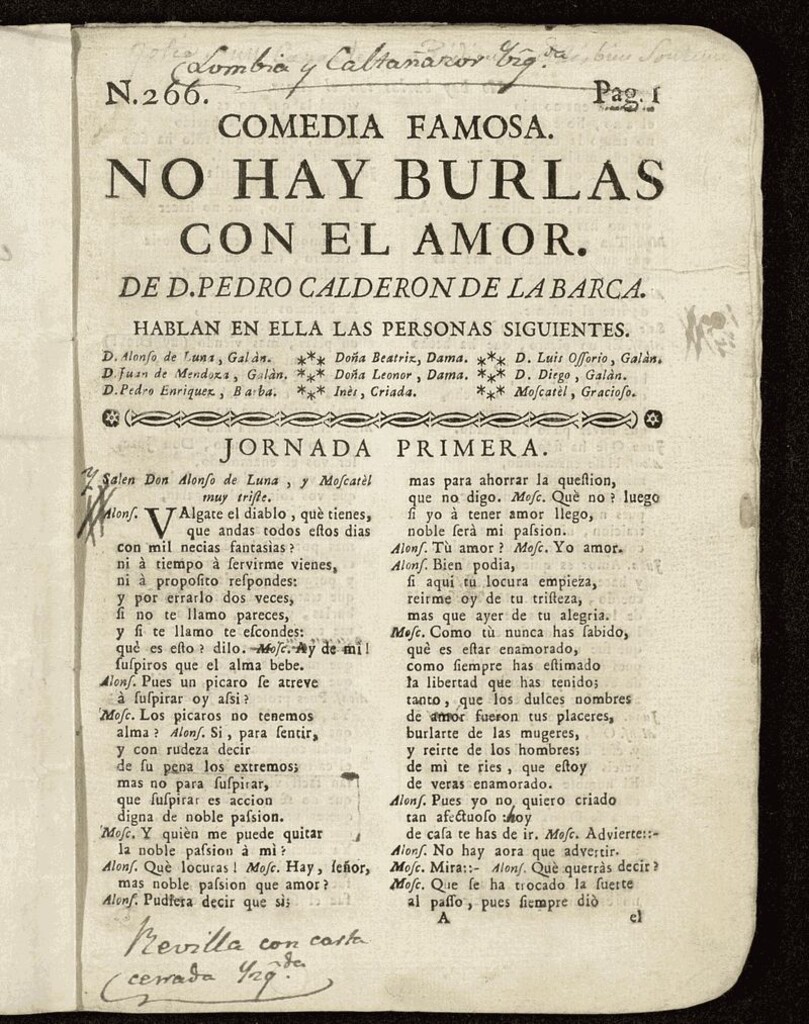 Lombia y Caltañazor Yzq.da
N.266. Pag. 1
COMEDIA FAMOSA.
NO HAY BURLAS
CON EL AMOR.
DE D. PEDRO CALDERON DE LA BARCA.
HABLAN EN ELLA LAS PERSONAS SIGUIENTES.
D. Alonſo de Luna, Galàn. *** Doña Beatriz, Dama. *** D. Luis Oſſorio, Galàn.
D. Juan de Mendoza, Galàn. *** Doña Leonor, Dama. *** D. Diego, Galàn.
D. Pedro Enriquez, Barba. *** Inès, Criada. *** Moſcatèl, Gracioſo.
JORNADA PRIMERA.
Salen Don Alonſo de Luna, y Moſcatèl
muy triſte.
Alonſ. VAlgate el diablo, què tienes,
que andas todos eſtos dias
con mil necias fantasias?
ni à tiempo à ſervirme vienes,
ni à propoſito reſpondes:
y por errarlo dos veces,
ſi no te llamo pareces,
y ſi te llamo te eſcondes:
què es eſto? dilo. Moſc. Ay de mi!
ſuſpiros que el alma bebe.
Alonſ. Pues un picaro ſe atreve
à ſuſpirar oy aſsi?
Moſc. Los picaros no tenemos
alma? Alonſ. Si, para ſentir,
y con rudeza decir
de ſu pena los extremos;
mas no para ſuſpirar,
que ſuſpirar es accion
digna de noble paſsion.
Moſc. Y quièn me puede quitar
la noble paſsion à mi?
Alonſ. Què locuras! Moſc. Hay, ſeñor,
mas noble paſsion que amor?
Alonſ. Pudiera decir que sì;
mas para ahorrar la queſtion,
que no digo. Moſc. Què no? luego
ſi yo à tener amor llego,
noble ſerà mi paſsion.
Alonſ. Tù amor? Moſc. Yo amor.
Alonſ. Bien podia,
ſi aqui tu locura empieza,
reirme oy de tu triſteza,
mas que ayer de tu alegria.
Moſc. Como tù nunca has ſabido,
què es eſtar enamorado,
como ſiempre has eſtimado
la libertad que has tenido;
tanto, que los dulces nombres
de amor fueron tus placeres,
burlarte de las mugeres,
y reirte de los hombres;
de mì te ries, que eſtoy
de veras enamorado.
Alonſ. Pues yo no quiero criado
tan afectuoſo: hoy
de caſa te has de ir. Moſc. Advierte::-
Alonſ. No hay aora que advertir.
Moſc. Mira::- Alonſ. Què querràs decir?
Moſc. Que ſe ha trocado la ſuerte
al paſſo, pues ſiempre diò
A el
Revilla con carta
cerrada Yzq.da